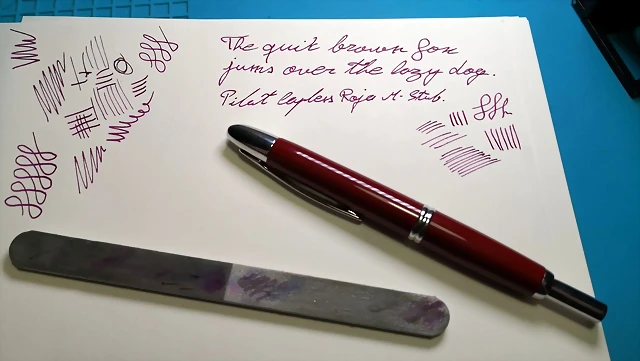 The quit brown fox
jums over the lazy dog.
Pilot Capless Roja M-Stub.